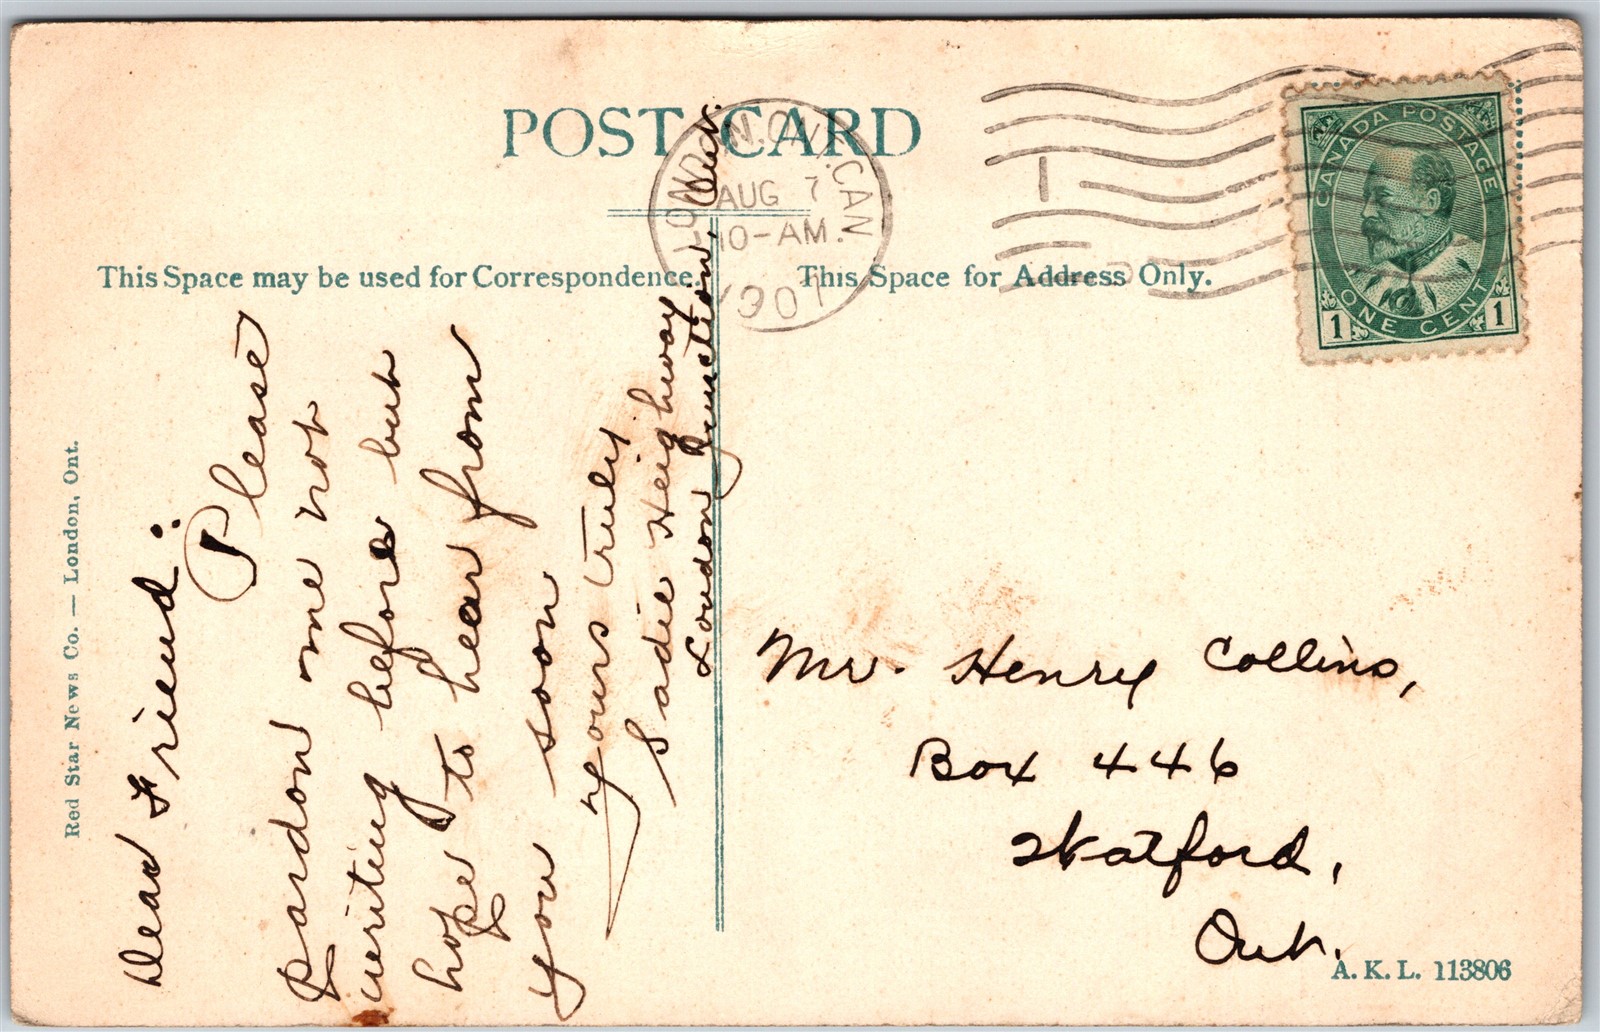 POST CARD
LONDON.ONT.CAN
AUG 7
10-AM.
1907
1
CANADA POSTAGE
ONE CENT
1 1
This Space may be used for Correspondence.
This Space for Address Only.
Dear Friend:
Please
pardon me not
writing before but
hope to hear from
you soon
yours truly
Sadie Heighway,
London Junction, Ont.
Mr. Henry Collins,
Box 446
Stratford,
Ont.
Red Star News Co. — London, Ont.
A. K. L. 113806